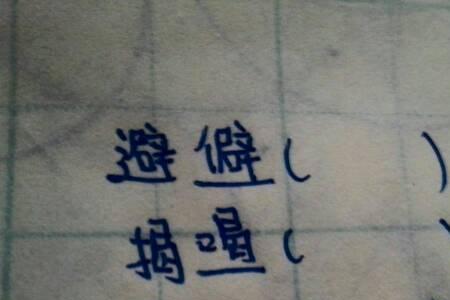 避僻(  )
揭喝(  )